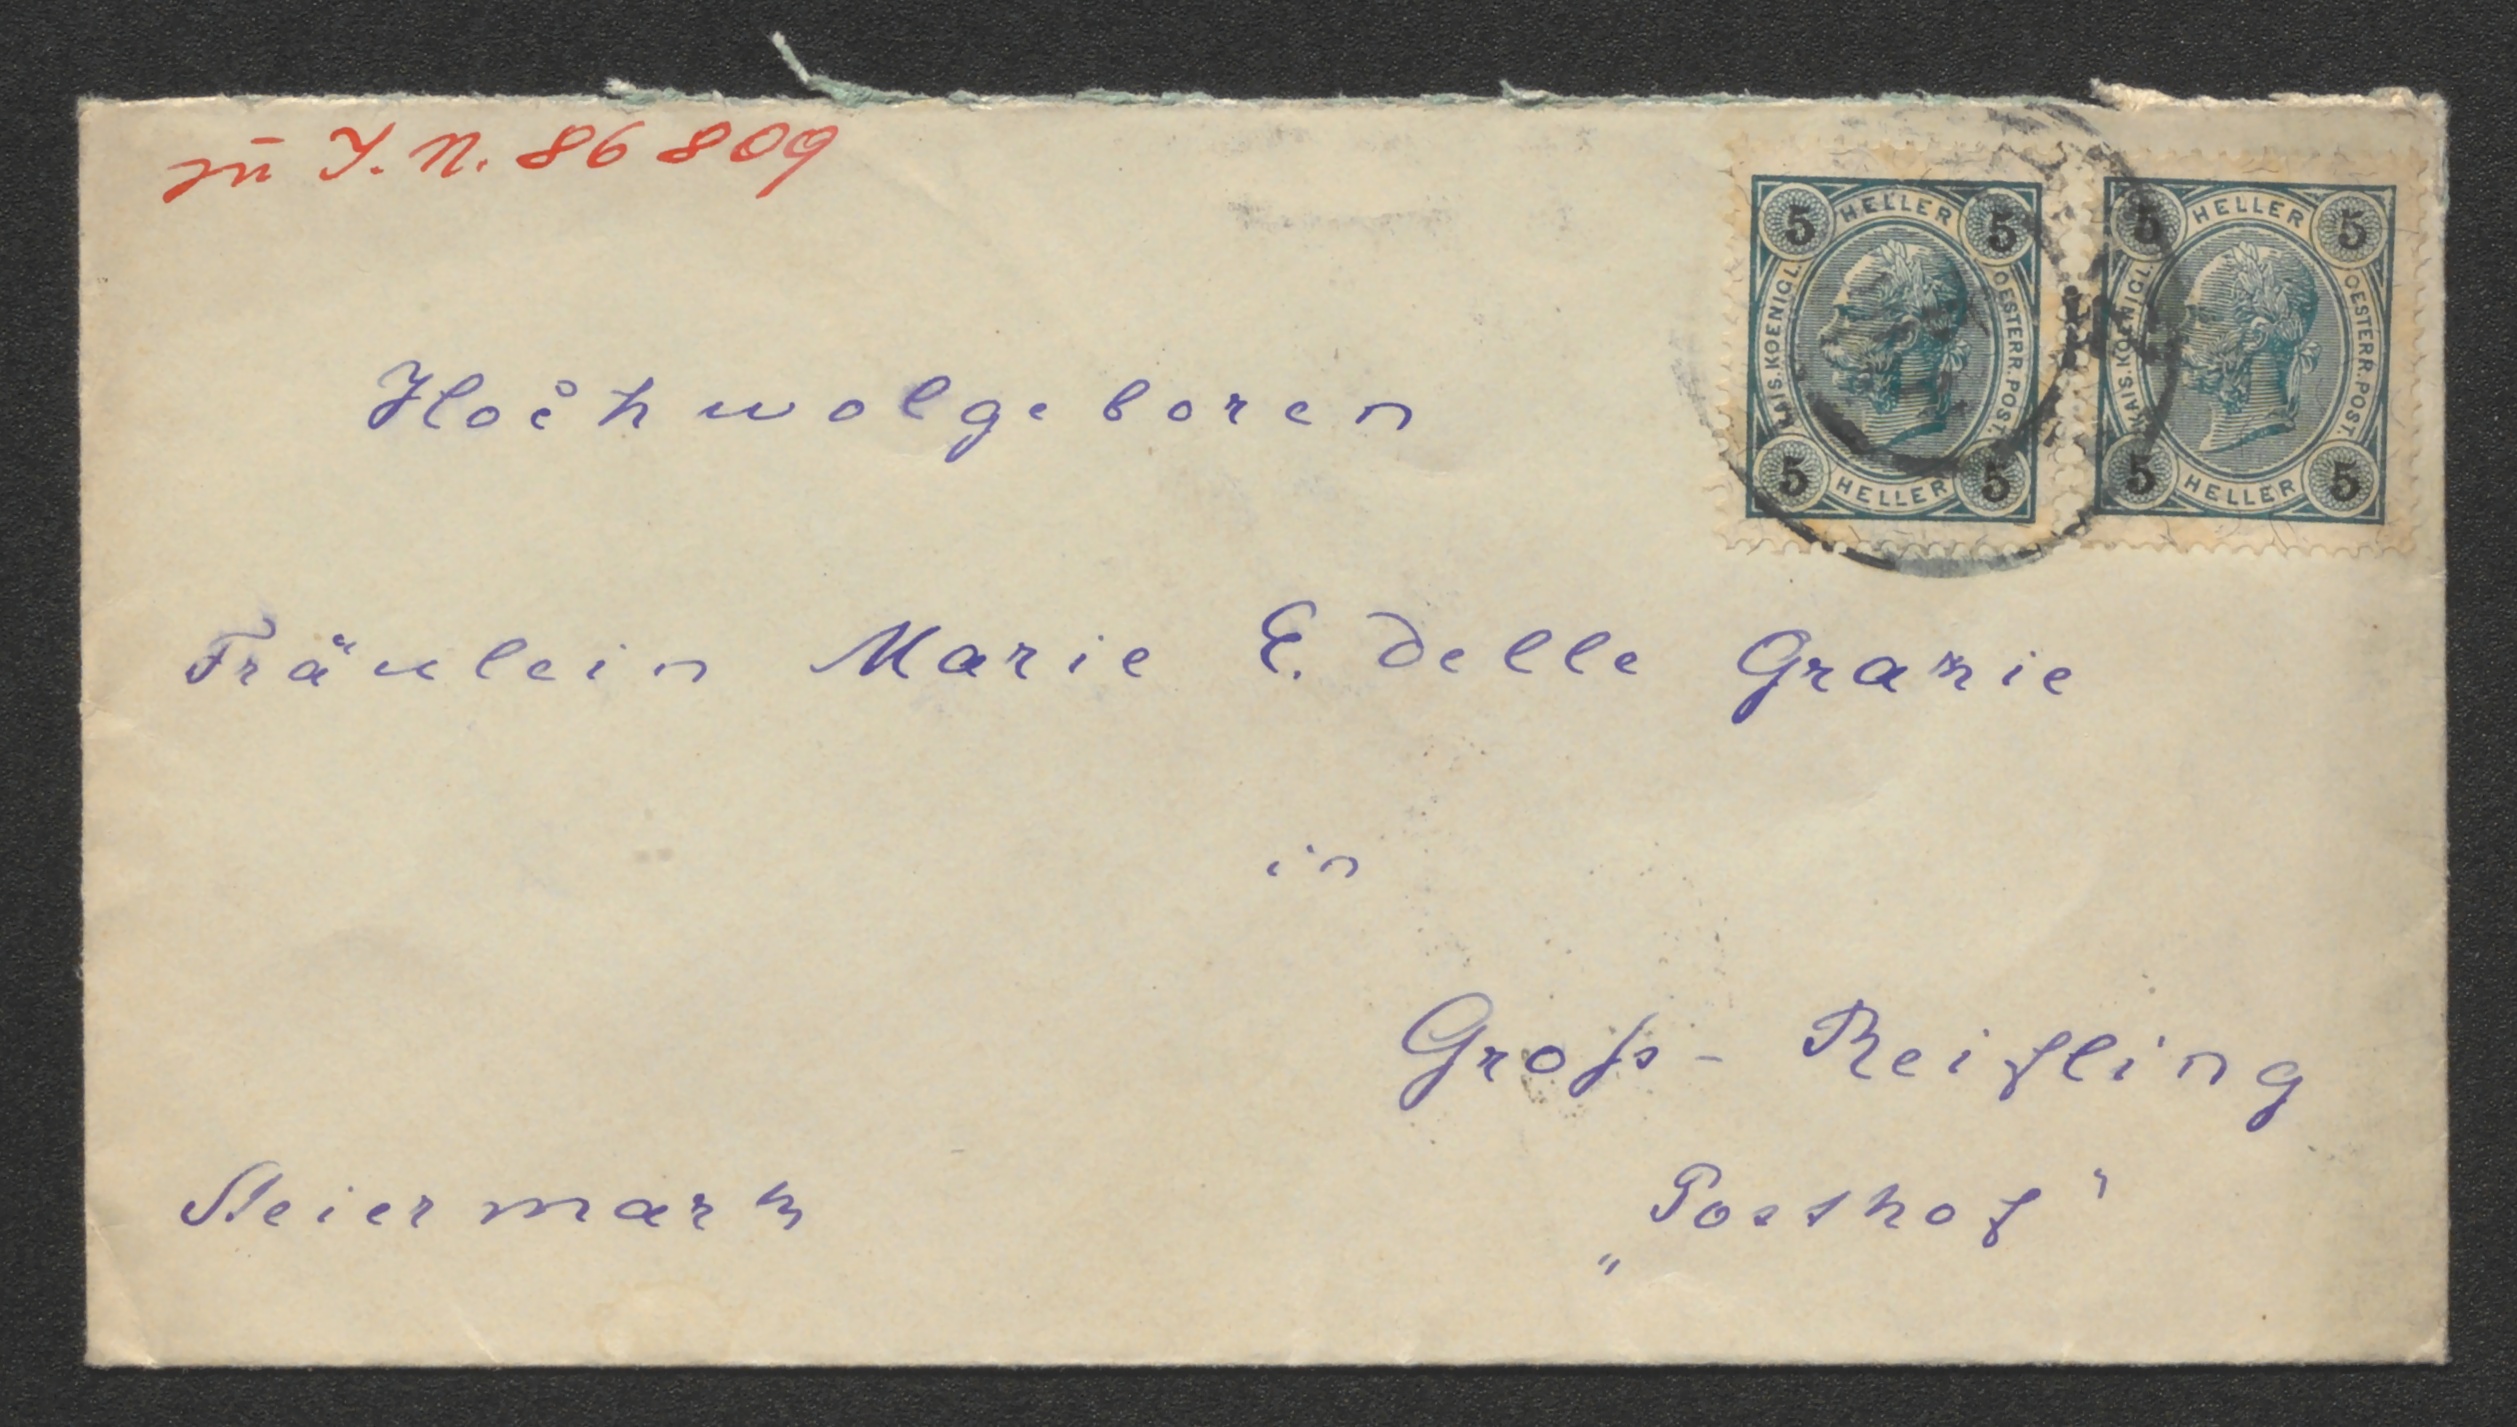 zu I. N. 86809
5 HELLER 5
KAIS. KOENIGL. OESTERR. POST.
5 HELLER 5
5 HELLER 5
KAIS. KOENIGL. OESTERR. POST.
5 HELLER 5
Hochwolgeboren
Fräulein Marie E. delle Grazie
in
Groß-Reifling
Steiermark „Posthof"